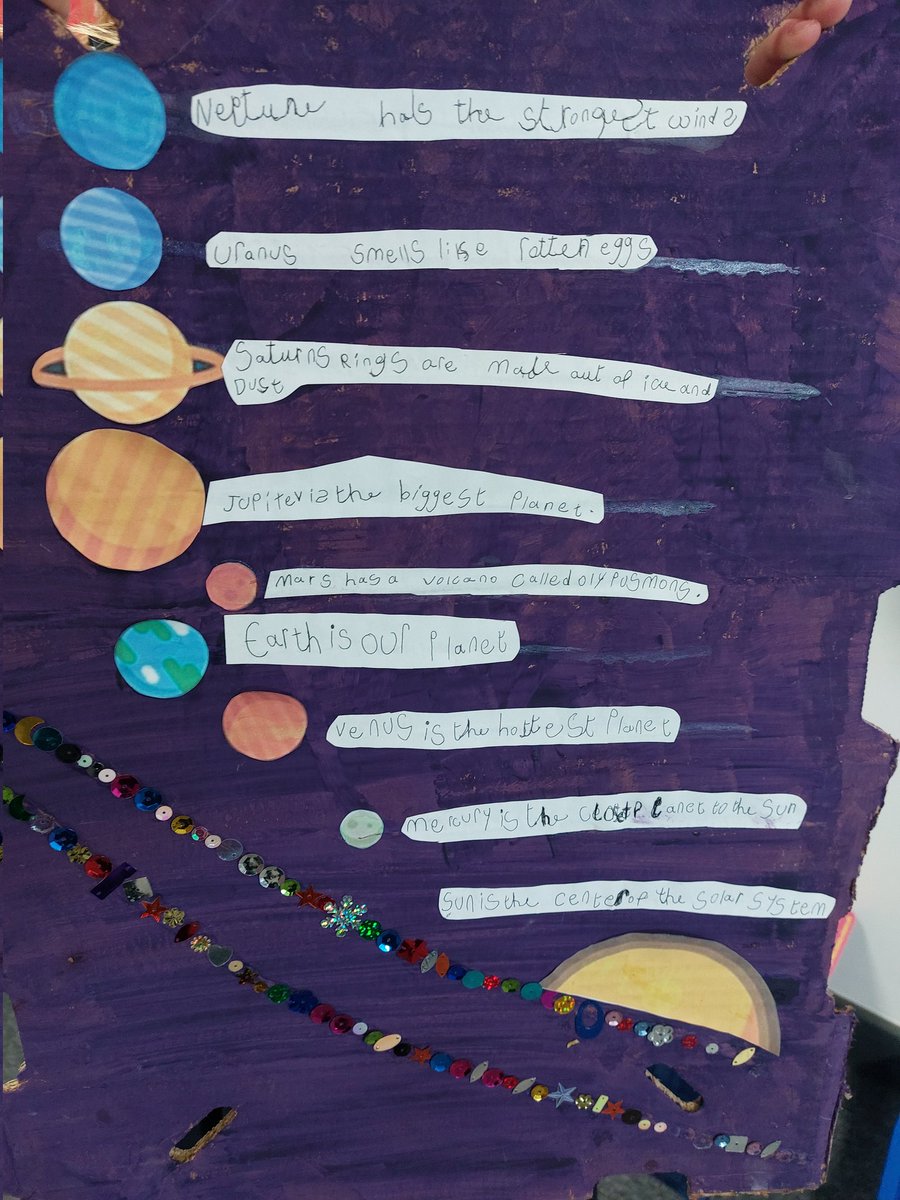 Neptune has the strongest winds
Uranus smells like rotten eggs
Saturns Rings are made out of ice and
Dust
Jupiter is the biggest planet.
Mars has a volcano called olypusmons.
Earth is our planet
Venus is the hottest planet
Mercury is the closte Planet to the Sun
Sun is the center op the solar system